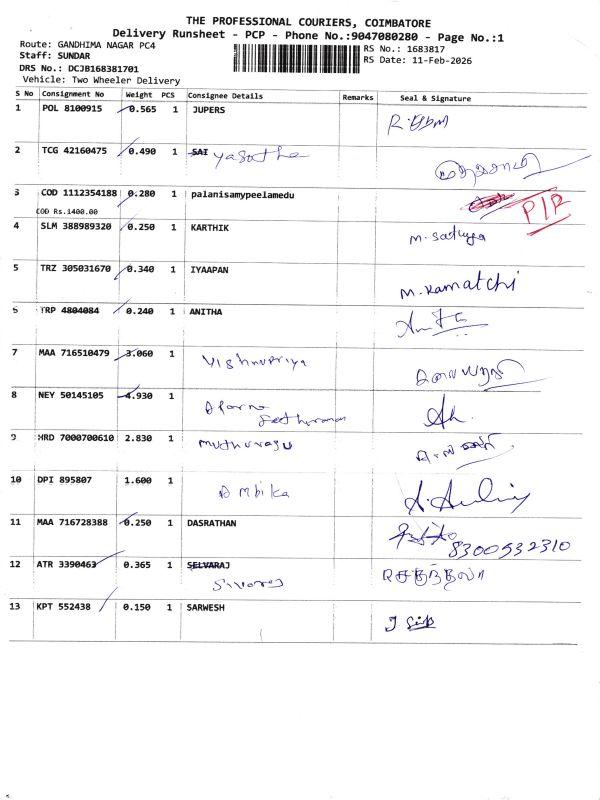 THE PROFESSIONAL COURIERS, COIMBATORE
Delivery Runsheet - PCP - Phone No.:9047080280 - Page No.:1
Route: GANDHIMA NAGAR PC4
RS No.: 1683817
Staff: SUNDAR
RS Date: 11-Feb-2026
DRS No.: DCJB168381701
Vehicle: Two Wheeler Delivery
S No Consignment No Weight PCS Consignee Details Remarks Seal & Signature
1 POL 8100915 0.565 1 JUPERS
2 TCG 42160475 0.490 1 SAI
3 COD 1112354188 0.280 1 palanisamypeelamedu P/R
COD Rs.1400.00
4 SLM 388989320 0.250 1 KARTHIK M. Sathya
5 TRZ 305031670 0.340 1 IYAAPAN M. Kamatchi
6 TRP 4804084 0.240 1 ANITHA
7 MAA 716510479 3.060 1 Vishnupriya
8 NEY 50145105 4.930 1
9 HRD 7000700610 2.830 1 Muthuraju
10 DPI 895807 1.600 1 Ambika
11 MAA 716728388 0.250 1 DASRATHAN
8300932310
12 ATR 3390463 0.365 1 SELVARAJ
Sivaraj
13 KPT 552438 0.150 1 SARWESH